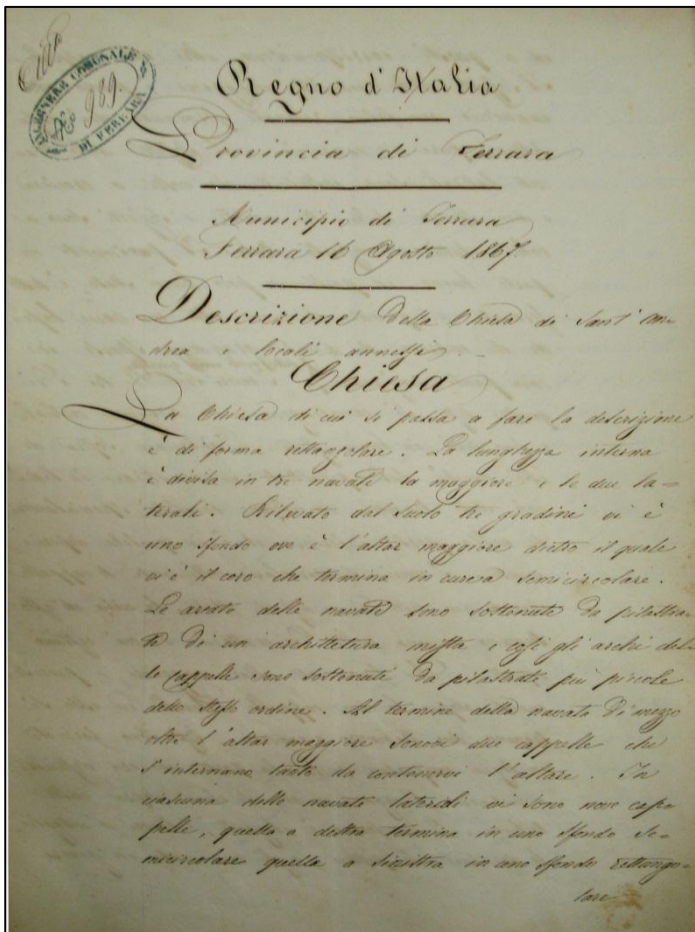 INGEGNERE COMUNALE
N.° 989.
DI FERRARA
Regno d'Italia
Provincia di Ferrara
Municipio di Ferrara
Ferrara 16 Agosto 1867
Descrizione della Chiesa di Sant'An-
drea e locali annessi
Chiesa
La Chiesa di cui si passa a fare la descrizione
è di forma rettangolare. La lunghezza interna
è divisa in tre navate la maggiore e le due la-
terali. Rilevato dal suolo tre gradini vi è
uno sfondo ove è l'altar maggiore dietro il quale
vi è il coro che termina in curva semicircolare.
Le arcate delle navate sono sostenute da pilastra-
te di un architettura mista e così gli archi del-
le cappelle sono sostenute da pilastrate più piccole
dello stesso ordine. Al termine della navata di mezzo
oltre l'altar maggiore sonovi due cappelle che
s'internano tanto da contenervi l'altare. In
ciascuna delle navate laterali vi sono nove cape
pelle, quella a destra termina in uno sfondo se-
micircolare quella a sinistra in uno sfondo rettango-
lare